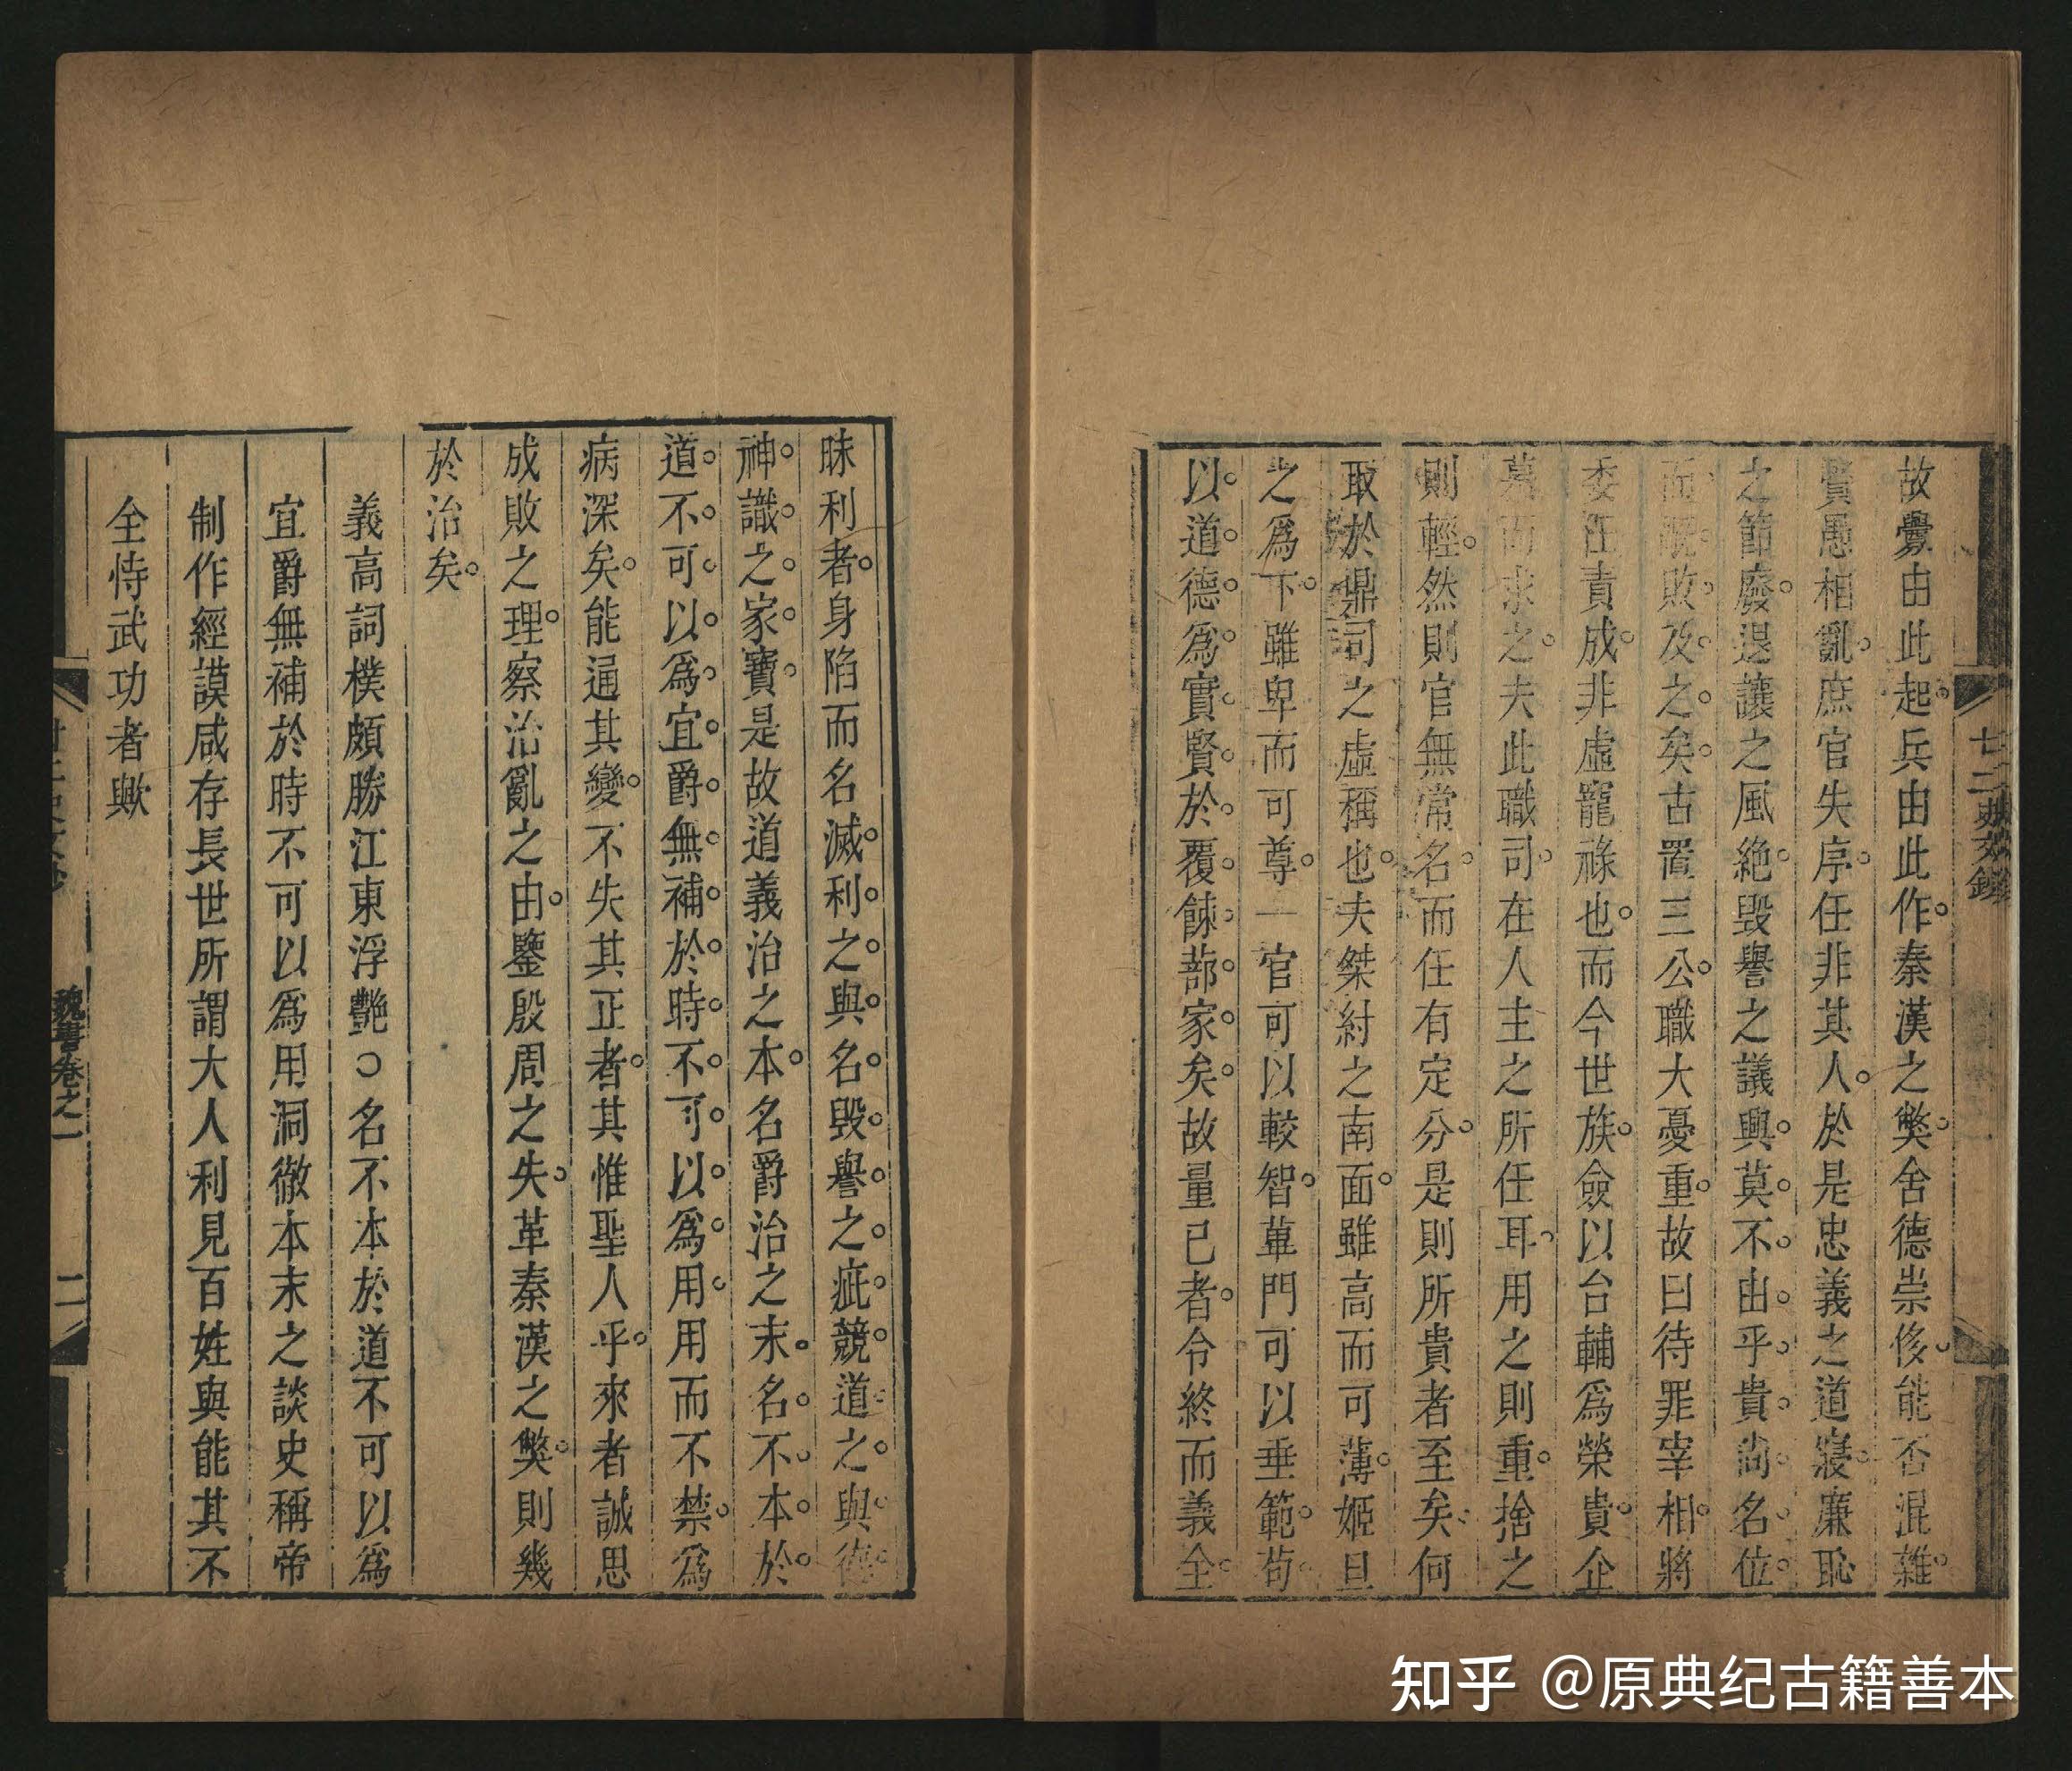 廿二史文鈔
故釁由此起兵由此作秦漢之獘舍德崇侈能否混雜
賢愚相亂庶官失序任非其人於是忠義之道寢廉恥
之節廢退讓之風絶毀譽之議興莫不由乎貴尚名位
而敗及之矣古置三公職大憂重故曰待罪宰相將
委任責成非虛寵祿也而今世族僉以台輔爲榮貴企
慕而求之夫此職司在人主之所任耳用之則重捨之
則輕然則官無常名而任有定分是則所貴者至矣何
取於鼎司之虛稱也夫桀紂之南面雖高而可薄姬旦
之爲下雖卑而可尊一官可以較智蓽門可以垂範苟
以道德爲實賢於覆餗蔀家矣故量己者令終而義全
昧利者身陷而名滅利之與名毀譽之疵競道之與德
神識之家寶是故道義治之本名爵治之末名不本於
道不可以爲宜爵無補於時不可以爲用用而不禁爲
病深矣能通其變不失其正者其惟聖人乎來者誠思
成敗之理察治亂之由鑒殷周之失革秦漢之獘則幾
於治矣
義高詞樸頗勝江東浮艷○名不本於道不可以爲
宜爵無補於時不可以爲用洞徹本末之談史稱帝
制作經謨咸存長世所謂大人利見百姓與能其不
全恃武功者歟
廿二史文鈔
魏書卷之一
二
知乎 @原典纪古籍善本